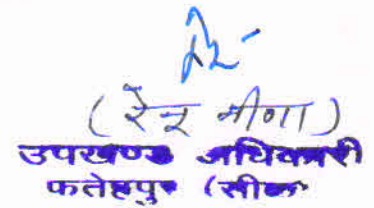 (रेनू मीणा)
उपखण्ड अधिकारी
फतेहपुर (सीकर